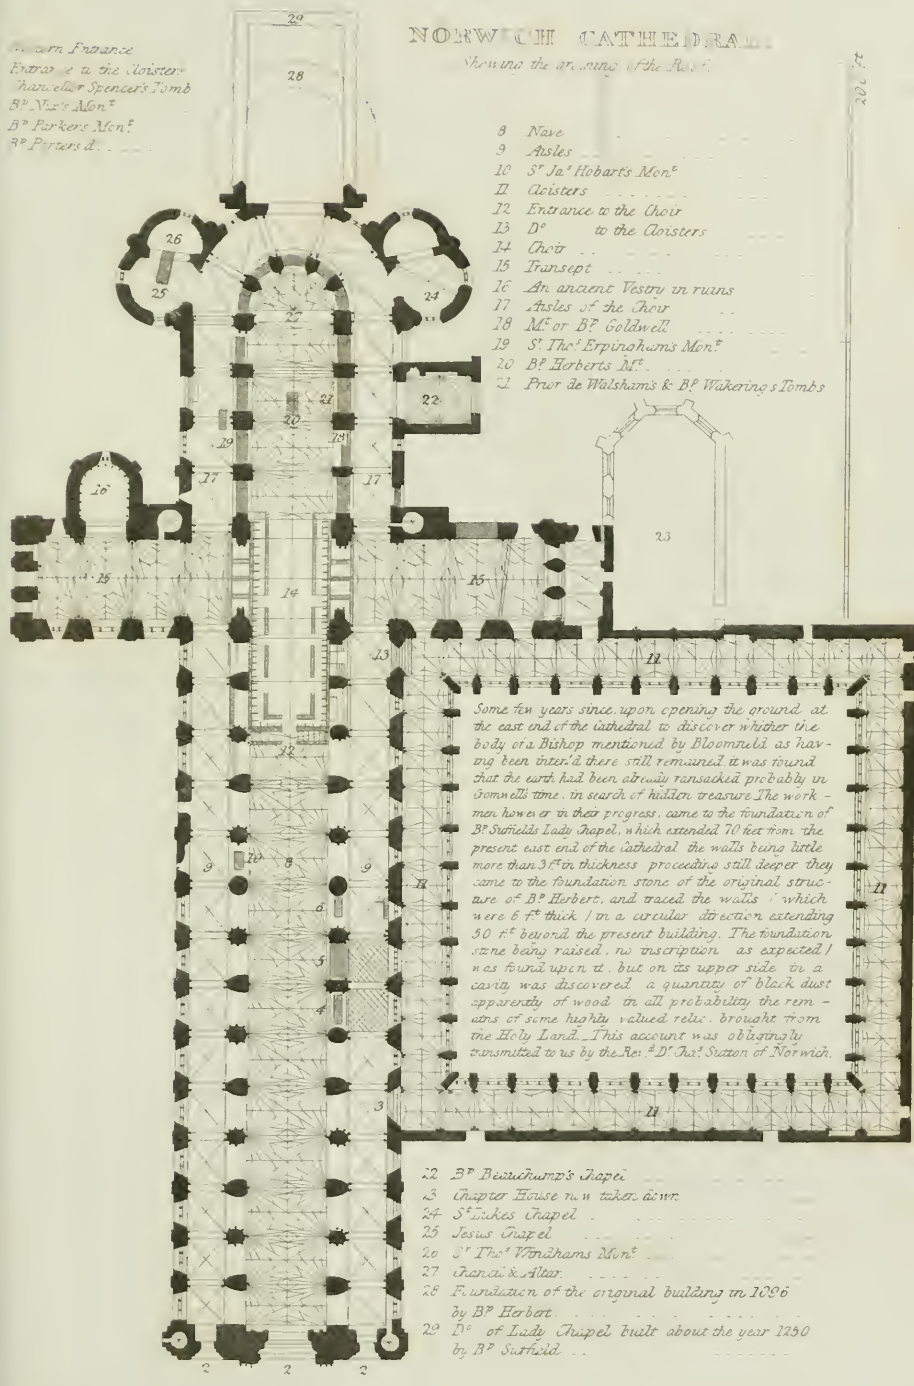 NORWICH CATHEDRAL
Shewing the groining of the Roof.
Western Entrance
Entrance to the Cloisters
Chancellor Spencer's Tomb
Bp. Nix's Mont.
Bp. Parkers Mont.
Bp.
200 ft
8 Nave
9 Aisles
10 Sr. Jas. Hobart's Mont.
11 Cloisters
12 Entrance to the Choir
13 Do. to the Cloisters
14 Choir
15 Transept
16 An ancient Vestry in ruins
17 Aisles of the Choir
18 Mt. or Bp. Goldwell
19 Sr. Thos. Erpingham's Mont.
20 Bp. Herberts Mt.
21 Prior de Walsham's & Bp. Wakering's Tombs
29
28
26
25
24
27
21
22
20
19
18
17
17
16
23
15
14
15
13
11
12
Some few years since, upon opening the ground at
the east end of the Cathedral to discover whether the
body of a Bishop mentioned by Bloomfield as hav-
ing been inter'd there still remained, it was found
that the earth had been already ransacked probably in
Cromwell's time, in search of hidden treasure. The work-
men however in their progress, came to the foundation of
Bp. Suffields Lady Chapel, which extended 70 feet from the
present east end of the Cathedral the walls being little
more than 3 ft. in thickness proceeding still deeper they
came to the foundation stone of the original struc-
ture of Bp. Herbert, and traced the walls (which
were 6 ft. thick) in a circular direction extending
50 ft. beyond the present building. The foundation
stone being raised, no inscription as expected)
was found upon it, but on its upper side in a
cavity was discovered a quantity of black dust
apparently of wood in all probability the rem-
ains of some highly valued relic, brought from
the Holy Land. This account was obligingly
transmitted to us by the Revd. Dr. Chas. Sutton of Norwich.
9
10
8
9
11
11
6
5
4
3
11
2
2
2
22 Bp. Beauchamp's Chapel
23 Chapter House now taken down
24 St. Lukes Chapel
25 Jesus Chapel
26 Sr. Thos. Windhams Mont.
27 Chancel & Altar
28 Foundation of the original building in 1096
by Bp. Herbert
29 Do. of Lady Chapel built about the year 1250
by Bp. Suffield